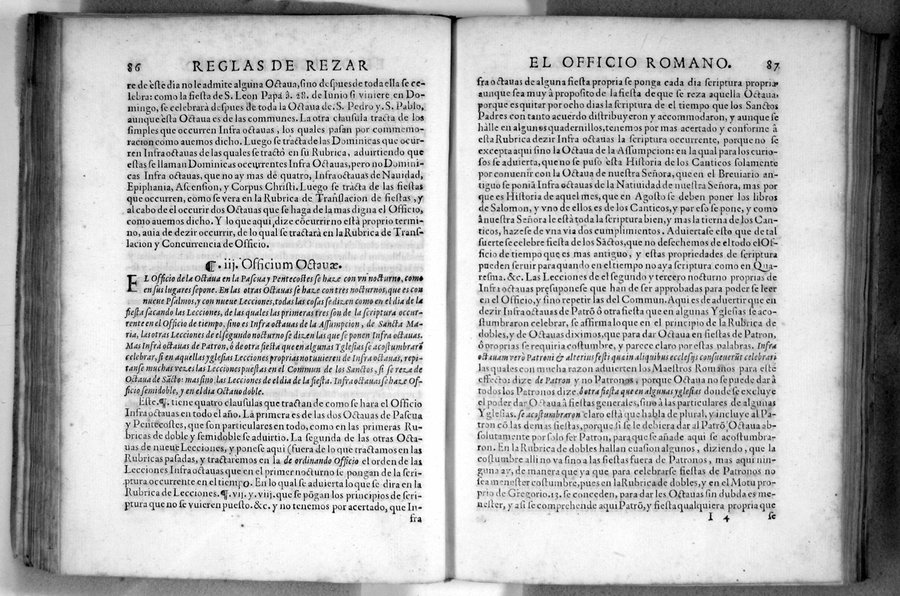 86 REGLAS DE REZAR
re de este dia no le admite alguna Octaua, sino despues de toda ella se ce-
lebra: como la fiesta de S. Leon Papa â. 28. de Iunio si viniere en Do-
mingo, se celebrarà despues de toda la Octaua de. S. Pedro y. S. Pablo,
aunque està Octaua es de las communes. La otra clausula tracta de los
simples que occurren Infra octauas, los quales pasan por commemo-
racion como auemos dicho. Luego se tracta de las Dominicas que ocur-
ren Infra octauas de las quales se tractò en su Rubrica, aduirtiendo que
estas se llaman Dominicas occurrentes Infra Octauas, pero no Domini-
cas Infra octauas, que no ay mas de quatro, Infra octauas de Nauidad,
Epiphania, Ascension, y Corpus Christi. Luego se tràcta de las fiestas
que occurren, como se vera en la Rubrica de Translacion de fiestas, y
al cabo de èl occurir dos Octauas que se haga de la mas digna el Officio,
como auemos dicho. Y lo que aqui, dize cōcurrir no està proprio termi-
no, auia de dezir occurrir, de lo qual se tractarà en la Rubrica de Trans-
lacion y Concurrencia de Officio.
¶. iij. Officium Octauæ.
EL Officio de la Octaua en la Pascua y Pentecostes se haze con vn nocturno, como
en sus lugares se pone. En las otras Octauas se haze con tres nocturnos, que es con
nueue Psalmos, y con nueue Lecciones, todas las cosas se dizen como en el dia de la
fiesta sacando las Lecciones, de las quales las primeras tres son de la scriptura occur-
rente en el Officio de tiempo. sino es Infra octauas de la Assumpcion, de Sancta Ma-
ria, las otras Lecciones de el segundo nocturno se dizen las que se ponen Infra octauas.
Mas Infra octauas de Patron, ò de otra fiesta que en algunas Yglesias se acostumbrarè
celebrar, si en aquellas yglesias Lecciones proprias no tuuieren de Infra octauas, repi-
tanse muchas vezes las Lecciones puestas en el Commun de los Sanctos, si se reza de
Octaua de Sācto: mas sino las Lecciones de el dia de la fiesta. Infra octauas se haze Of-
ficio semidoble, y en el dia Octauo doble.
Este. ¶. tiene quatro clausulas que tractan de como se hara el Officio
Infra octauas en todo el año. La primera es de las dos Octauas de Pascua
y Pentecostes, que son particulares en todo, como en las primeras Ru-
bricas de doble y semidoble se aduirtio. La segunda de las otras Octa-
uas de nueue Lecciones, y ponese aqui (fuera de lo que tractamos en las
Rubricas pasadas, y tractaremos en la de ordinando Officio el orden de las
Lecciones Infra octauas que en el primer nocturno se pongan de la scri-
ptura occurrente en el tiempo. En lo qual se aduierta lo que se dira en la
Rubrica de Lecciones. ¶. vij. y. viij. que se pōgan los principios de scri-
ptura que no se vuieren puesto. &c. y no tenemos por acertado, que In-
fra
EL OFFICIO ROMANO. 87
fra octauas de alguna fiesta propria se ponga cada dia scriptura propria
aunque sea muy à proposito de la fiesta de que se reza aquella Octaua,
porque es quitar por ocho dias la scriptura de el tiempo que los Sanctos
Padres con tanto acuerdo distribuyeron y accommodaron, y aunque se
hàlle en algunos quadernillos, tenemos por mas acertado y conforme à
esta Rubrica dezir Infra octauas la scriptura occurrente, porque no se
excepta aqui sino la Octaua de la Assumpcion en la qual para los curio-
sos se aduierta, que no se puso èsta Historia de los Canticos solamente
por conuenir con la Octaua de nuestra Señora, que en el Breuiario an-
tiguo se ponià Infra octauas de la Natiuidad de nuestra Señora, mas por
que es Historia de aquel mes, que en Agosto se deben poner los libros
de Salomon, y vno de ellos es de los Canticos, y por eso se pone, y como
à nuestra Señora le està toda la scriptura bien, y mas la tierna de los Can-
ticos, hazese de vna via dos cumplimientos. Aduiertase esto que de tal
suerte se celebre fiesta de los Sāctos, que no desechemos de el todo el Of-
ficio de tiempo que es mas antiguo, y estas propriedades de scriptura
pueden seruir para quando en el tiempo no aya scriptura como en Qua-
resma. &c. Las Lecciones de el segundo y tercero nocturno proprias de
Infra octauas presuponese que han de ser approbadas para poder se leer
en el Officio, y sino repetir las del Commun. Aqui es de aduertir que en
dezir Infra octauas de Patrō ô otra fiesta que en algunas Yglesias se aco-
stumbraron celebrar, se affirma lo que en el principio de la Rubrica de
dobles, y de Octauas diximos, que para dar Octaua en fiestas de Patron,
ô proprias se requiria costumbre, y parece claro por estas palabras. Infra
octauam verò Patroni & alterius festi quam in aliquibus ecclesijs consueuerūt celebrari
las quales con mucha razon aduierten los Maestros Romanos para este
effectos dize de Patron y no Patronos, porque Octaua no se puede darà
todos los Patronos dize. ô otra fiesta que en algunas yglesias donde se excluye
el poder dar Octaua à fiestas generales, sino à las particulares de algunas
Yglesias. se acostumbraron claro està que habla de plural, y incluye al Pa-
tron cō las demas fiestas, porque si se le debiera dar al Patrō, Octaua ab-
solutamente por solo ser Patron, para que se añade aqui se acostumbra-
ron. En la Rubrica de dobles hallan cauasion algunos, diziendo, que la
costumbre alli no va sino a las fiestas fuera de Patronos, mas aqui nin-
guna ay, de manera que ya que para celebrarse fiestas de Patronos no
sea menester costumbre, pues en la Rubrica de dobles, y en el Motu pro-
prio de Gregorio. 13. se conceden, para dar les Octauas sin dubda es me-
nester, y asi se comprehende aqui Patrō, y fiesta qualquiera propria que
I 4 se